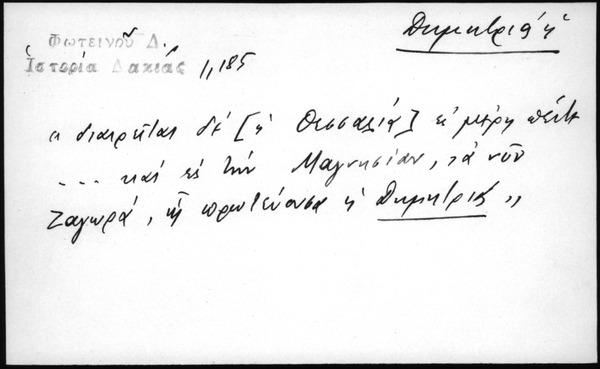 Δημητριάς ἡ
Φωτεινοῦ Δ.
Ἱστορία Δακίας 1,185
" διαιρεῖται δὲ [ἡ Θεσσαλία] εἰς μέρη πέντε
... καὶ εἰς τὴν Μαγνησίαν, τὰ νῦν
Ζαγωρά, ἧς πρωτεύουσα ἡ Δημητριάς "